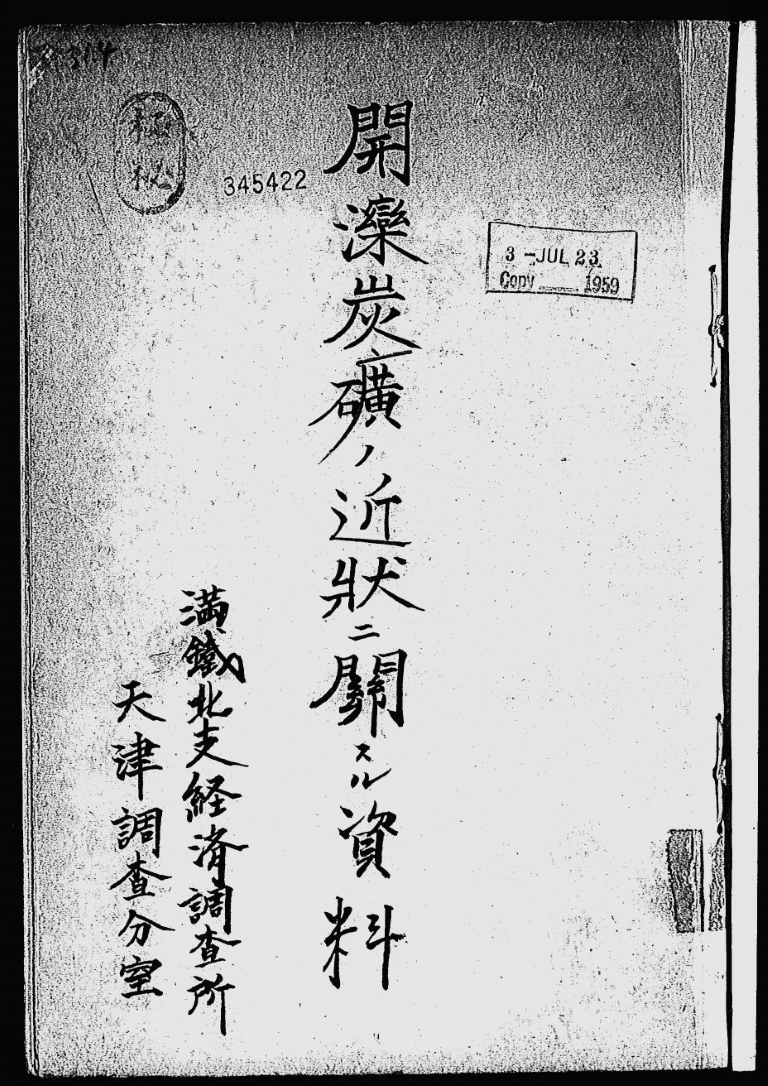 開灤炭礦ノ近狀ニ關スル資料
滿鐵北支経済調査所
天津調査分室
極秘
345422
3 -JUL 23
Copy 1959
314